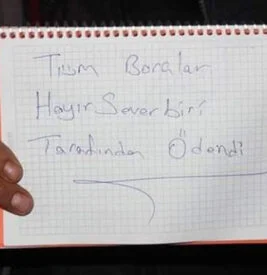 Tüm Borçlar
Hayır Sever biri
Tarafından Ödendi